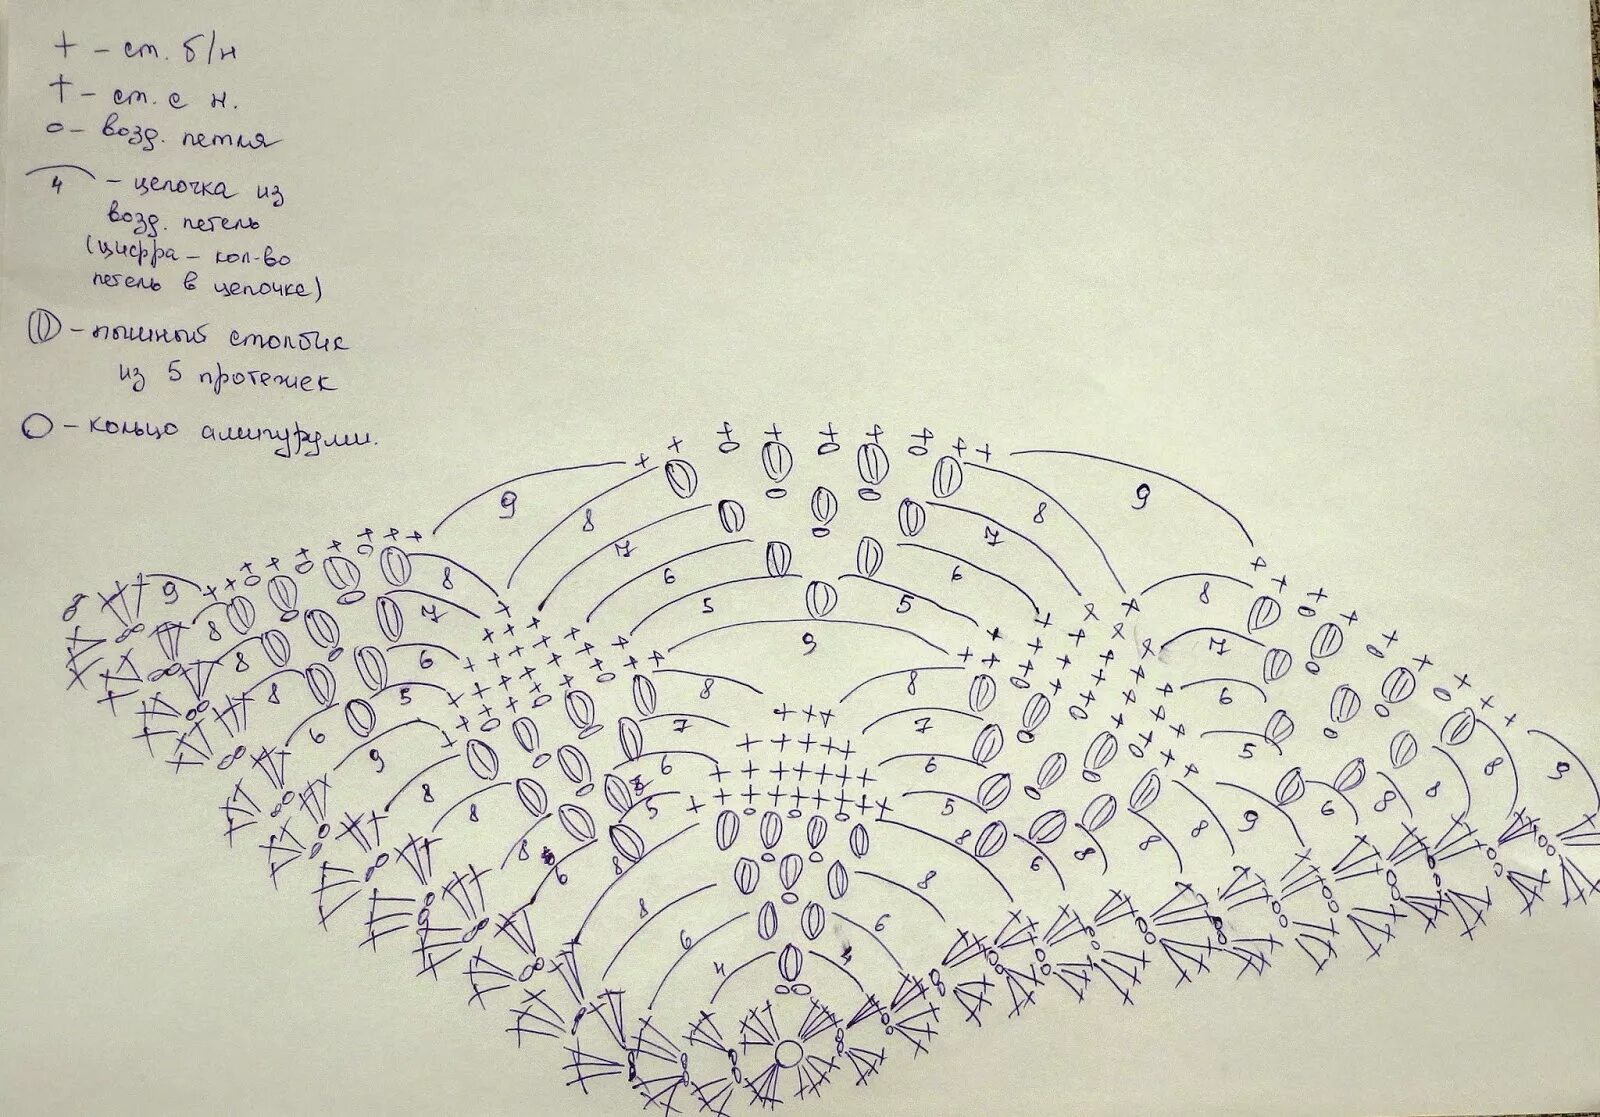 + – ст. б/н
† – ст. с н.
о – возд. петля
4 – цепочка из
возд. петель
(цифра – кол-во
петель в цепочке)
– пышный столбик
из 5 протяжек
– кольцо амигуруми.
9 8 7 6 5 5 9 6 7 8 9
9 8 7 8 6 8 5 6 9 8 8
8 7 6 5 8 8 7 6 5 8
8 7 6 5 6 8 8 9
9 8 8 6 8 6 4 4 6 8
6 8 8 8 9